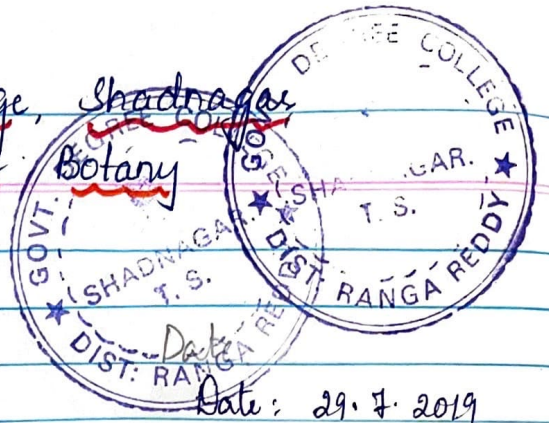 ge, Shadnagar
Botany
GOVT. DEGREE COLLEGE
SHADNAGAR.
T. S.
DIST: RANGA RE
DE EE COLLEGE
SHA GAR.
T. S.
DIST: RANGA REDDY
Date
Date: 29.7.2019